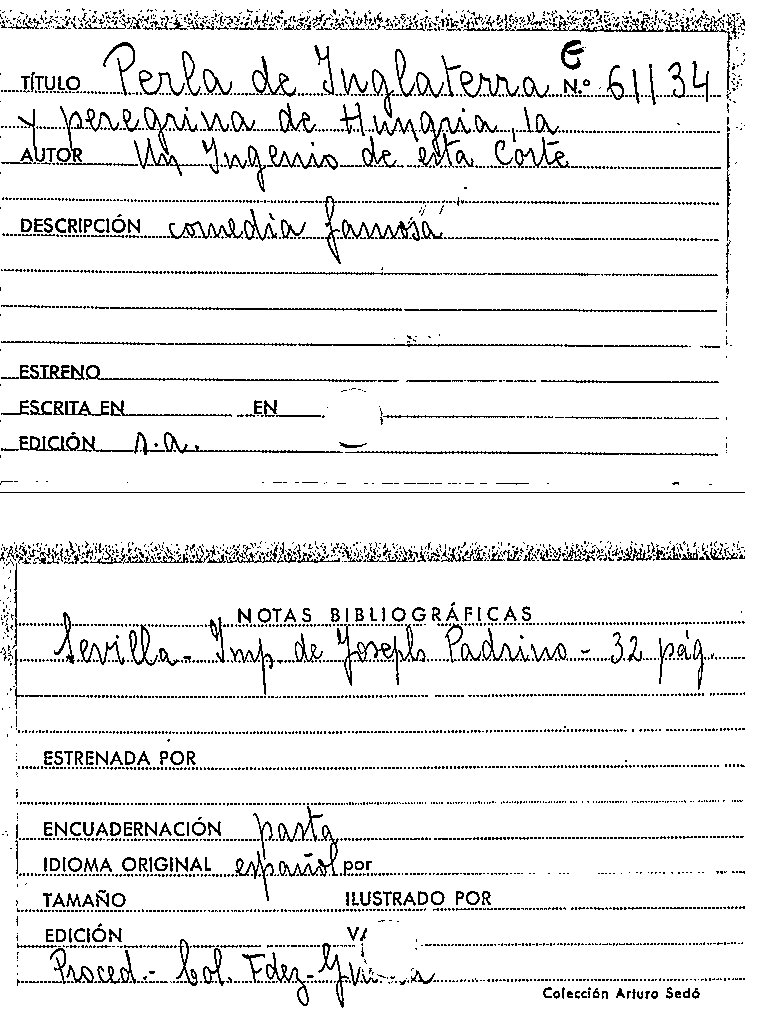 TÍTULO Perla de Inglaterra N.º G 61134
y peregrina de Hungria, la
AUTOR Un Ingenio de esta Corte
DESCRIPCIÓN comedia famosa
ESTRENO
ESCRITA EN EN
EDICIÓN s.a.
NOTAS BIBLIOGRÁFICAS
Sevilla - Imp. de Joseph Padrino - 32 pág.
ESTRENADA POR
ENCUADERNACIÓN pasta
IDIOMA ORIGINAL español por
TAMAÑO ILUSTRADO POR
EDICIÓN
Proced.- Col. Fdez-
Colección Arturo Sedó